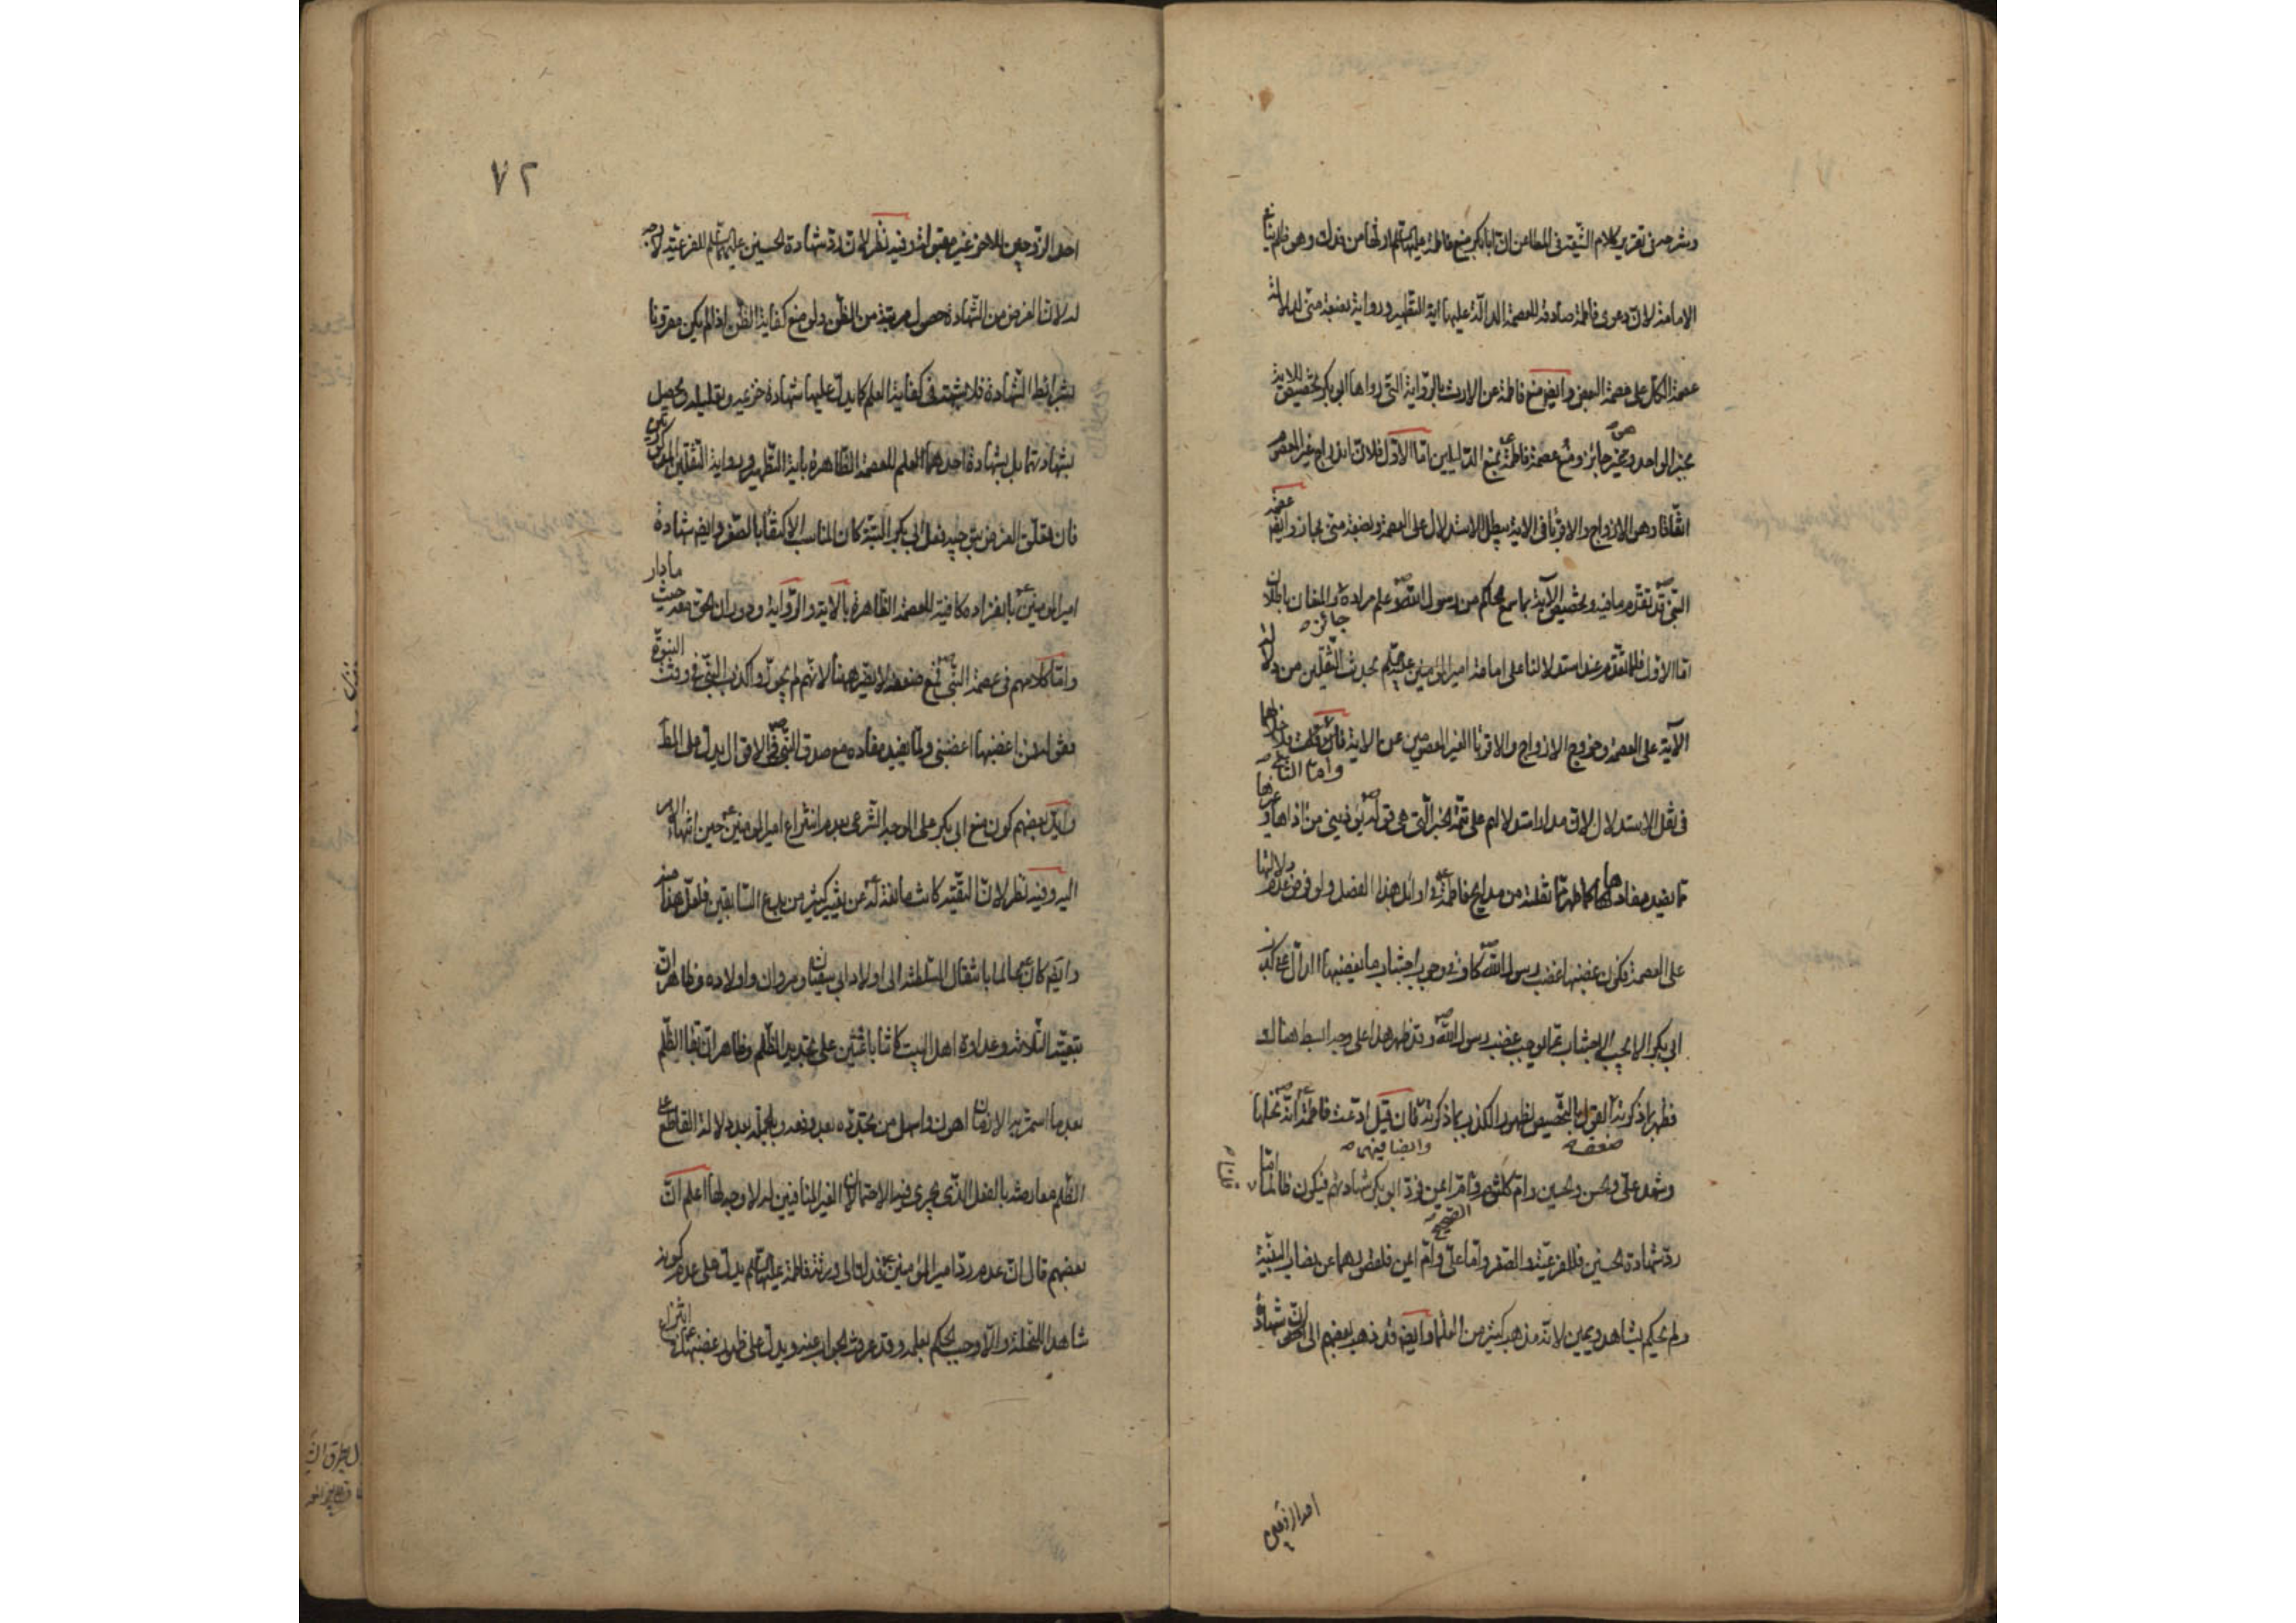 وشرحه فى تقرير كلام الشيعة فى المطاعن ان ابابكر منع فاطمة عليها السلم ارثها من فدك وهو ظلم ينافى
الامامة لان دعوى فاطمة صادقة للعصمة الدالة عليها اية التطهير ورواية بضعة منى لدلالة
عصمة الكل على عصمة البعض وايضا منع فاطمة عن الارث بالرواية التى رواها ابو بكر تخصيص للاية
بخبر الواحد وهو غير جائز ومنع عصمة فاطمة بمنع الدليلين اما الاول فلان ازواج غير المعصوم
اتفاقا وهن الازواج والاقربا فى الاية يبطل الاستدلال على العصمة وبضعة منى مجاز وايضا عصمة
النبى قد تقدم ما فيه وتخصيص الآية بما سمع الحاكم من رسول الله وعلم مراده جائز والمنعان باطلان
اما الاول فلما تقدم عند استدلالنا على امامة امير المؤمنين عليه السلم بحديث الثقلين من دلالة
الآية على العصمة وخروج الازواج والاقربا الغير المعصومين عن الاية فان قلت
واما الثانى
فى نقل الاستدلال لان مدار استدلالهم على تتمة الخبر التى هى قوله يؤذينى من اذاها و
مما يفيد مفادها كما ظهر مما نقلته من مدايح فاطمة فى اوائل هذا الفصل ولو فرض عدم دلالتها
على العصمة فكون غضبها غضب رسول الله كاف فى وجوب اجتناب ما يغضبها الدال على كذب
ابى بكر الا يجب الاجتناب عما يوجب غضب رسول الله وقد ظهر هذا على وجه البسط هنالك
فظهر بما ذكرته ضعف القول بالتخصيص لظهور الكذب بما ذكرته فان قيل ادعت فاطمة انه نحلها
وايضا فيهى
وشهد على والحسن والحسين وام كلثوم وام ايمن فرد ابو بكر شهادتهم فيكون ظالما قلنا اما
رد شهادة الحسنين فللفرعية والصغر واما على وام ايمن فلقصورهما عن نصاب البينة
ولم يحكم بشاهد ويمين لانه مذهب كثير من العلما وايضا قد ذهب بعضهم الى ان شهادة
احد الزوجين
٧٢
احد الزوجين للاخر غير مقبولة وفيه نظر لان رد شهادة الحسنين عليهما السلم للفرعية لا وجه
له لان الغرض من الشهادة حصول مرتبة من الظن ولو منع كفاية الظن اذا لم يكن مقرونا
بشرائط الشهادة فلا شبهة فى كفاية العلم كما يدل عليها شهادة خزيمة وتعليله ويحصل
بشهادتهما بل بشهادة احدهما العلم للعصمة الظاهرة باية التطهير ورواية الثقلين المذكورتين
فان تعلق الغرض بتوجيه فعل ابى بكر البتة كان المناسب الاكتفا بالصغر وايضا شهادة
امير المؤمنين بانفراده كافية للعصمة الظاهرة بالاية والرواية ودوران الحق معه حيث مادار
واما كلامهم فى عصمة النبى فمع ضعفه لا يضر ههنا لانهم لم يجوزوا كذب النبى فى وقت النبوة
فقوله من اغضبها اغضبنى وما يفيد مفاده مع صدق النبى فى الاقوال يدل على المط
وايد بعضهم كون منع ابى بكر على الوجه الشرعى بعدم انتزاع امير المؤمنين حين انتهاء الامر
اليه وفيه نظر لان التقية كانت مانعة له عن تغيير كثير من بدع السابقين فلعل هذا منه
وايضا كان عالما بانتقال السلطنة الى اولاد ابى سفيان ومروان واولاده وظاهر ان
تبعية الثلاثة وعداوة اهل البيت كانتا باعثتين على تجديد الظلم وظاهر ان بقا الظلم
بعد ما استمر به الازمان اهون واسهل من تجدده بعد رفعه وبالجملة بعد دلالة القاطع على
الظلم معارضته بالفعل الذى يجرى فيه الاحتمالان الغير المنافيين له لا وجه لها اعلم ان
بعضهم قال ان عدم رد امير المؤمنين فدك الى ورثة فاطمة عليها السلم يدل على عدم كونه
شاهدا للنحلة والا وجب الحكم بعلمه وقد عرفت الجواب عنه ويدل على ظهور غضبها انتزاع